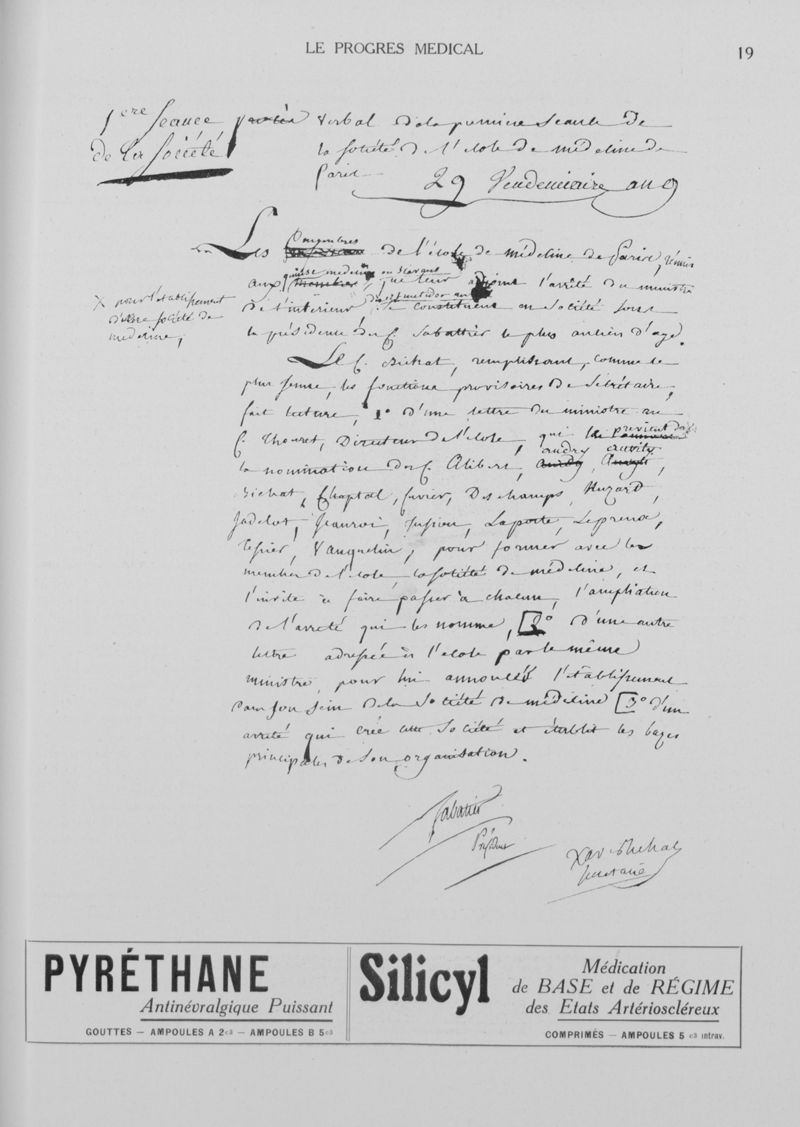 LE PROGRES MEDICAL
19
1ere Seance
de La Société
procès Verbal de la premiere Seance de
la Société de l'ecole de médecine de
Paris
29 Vendemiaire an 9
Les de l'école de médecine de Paris, réunis
aux que leur l'arrêté du ministre
de l'intérieur, se constituent en Société sous
X pour l'etablissement
d'une société de
medecine,
la présidence du C. Sabattier le plus ancien d'age.
Le C. Bichat, remplissant, comme le
plus jeune, les fonctions provisoires de Secrétaire,
fait lecture, 1º d'une lettre du ministre au
C. Thouret, Directeur de l'ecole, qui previent de
audry auvity
la nomination des C. Alibert,
Bichat, Chaptal, Cuvier, Deschamps, Huzard,
Jadelot, Jeauroi, Jussieu, Laporte, Lepreux,
Tessier, Vauquelin, pour former avec les
membres de l'ecole la société de médecine, et
l'invite à faire passer à chacun, l'ampliation
de l'arreté qui les nomme, [2º d'une autre
lettre adressée à l'ecole par le même
ministre, pour lui annoncer l'établissement
dans son sein de la Société de médecine [3º d'un
arreté qui crée cette Société et établit les bases
principales de son organisation.
Sabatier
Président
Xav Bichat
secretaire
PYRÉTHANE
Antinévralgique Puissant
GOUTTES — AMPOULES A 2cs — AMPOULES B 5cs
Silicyl
Médication
de BASE et de RÉGIME
des Etats Artérioscléreux
COMPRIMÉS — AMPOULES 5 cs intrav.